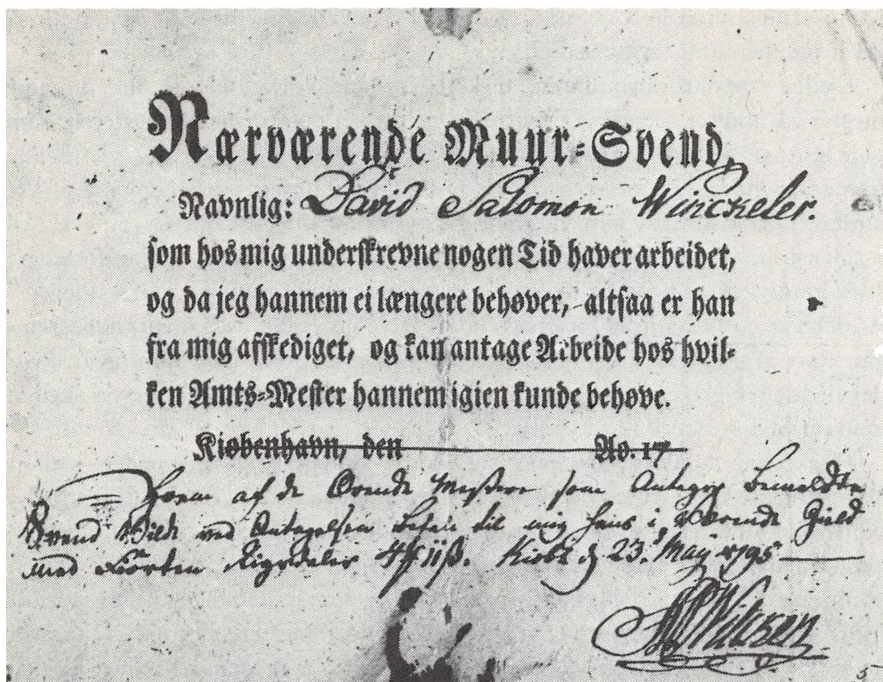 Nærværende Muur-Svend,
Navnlig: David Salomon Winckeler.
som hos mig underskrevne nogen Tid haver arbeidet,
og da jeg hannem ei længere behøver, altsaa er han
fra mig afskediget, og kan antage Arbeide hos hvil-
ken Amts-Mester hannem igien kunde behøve.
Kiøbenhavn, den Ao. 17
af de Mestere som Antager bemeldte
Svend Vilde ved Antagelsen betale til mig hans i værende Gield
med Rigsdaler 4 ß. Kiøbh. d 23. May 1795
5